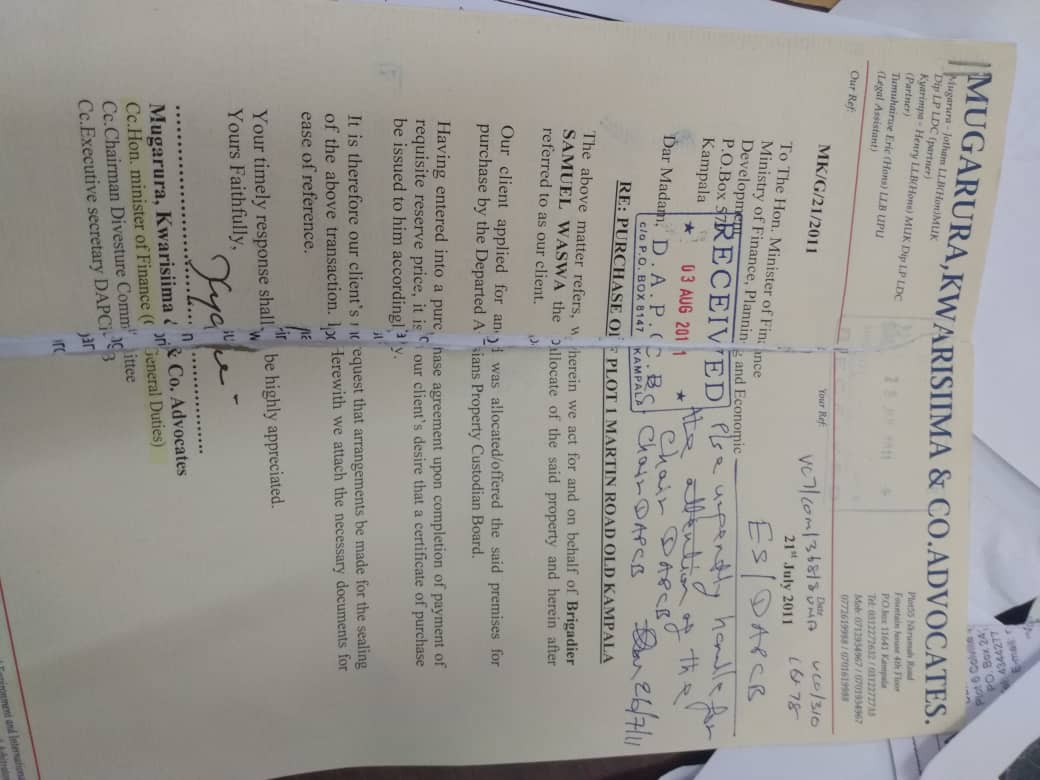 MUGARURA, KWARISIIMA & CO. ADVOCATES.
Mugarura - Jotham LLB(Hon)MUK
Dip LP LDC (partner)
Kyarimpa - Henry LLB(Hons) MUK Dip LP LDC
(Partner)
Tumuhairwe Eric (Hons) LLB UPU
(Legal Assistant)
Plot55 Nkrumah Road
Fountain house 4th Floor
P.O.box 11641 Kampala
Tel: 0312272632 / 0312272733
Mob: 0712934967 / 0701934967
0772619988 / 0701619988
Our Ref:
Your Ref:
Date
MK/G/21/2011
21st July 2011
To The Hon. Minister of Finance
Ministry of Finance, Planning and Economic
Development
P.O.Box
Kampala
RECEIVED
★ 03 AUG 2011 ★
D.A.P.C.B.
C/O P.O. BOX 8147 KAMPALA
ES/DAPCB
Pls urgently handle for
the attention of the
Chair DAPCB
Chair DAPCB
26/7/11
Dar Madam,
RE: PURCHASE OF PLOT 1 MARTIN ROAD OLD KAMPALA
The above matter refers, wherein we act for and on behalf of Brigadier
SAMUEL WASWA the allocate of the said property and herein after
referred to as our client.
Our client applied for and was allocated/offered the said premises for
purchase by the Departed Asians Property Custodian Board.
Having entered into a purchase agreement upon completion of payment of
requisite reserve price, it is our client's desire that a certificate of purchase
be issued to him accordingly.
It is therefore our client's request that arrangements be made for the sealing
of the above transaction. Herewith we attach the necessary documents for
ease of reference.
Your timely response shall be highly appreciated.
Yours Faithfully,
Mugarura, Kwarisiima & Co. Advocates
Cc.Hon. minister of Finance (General Duties)
Cc.Chairman Divesture Committee
Cc.Executive secretary DAPCB